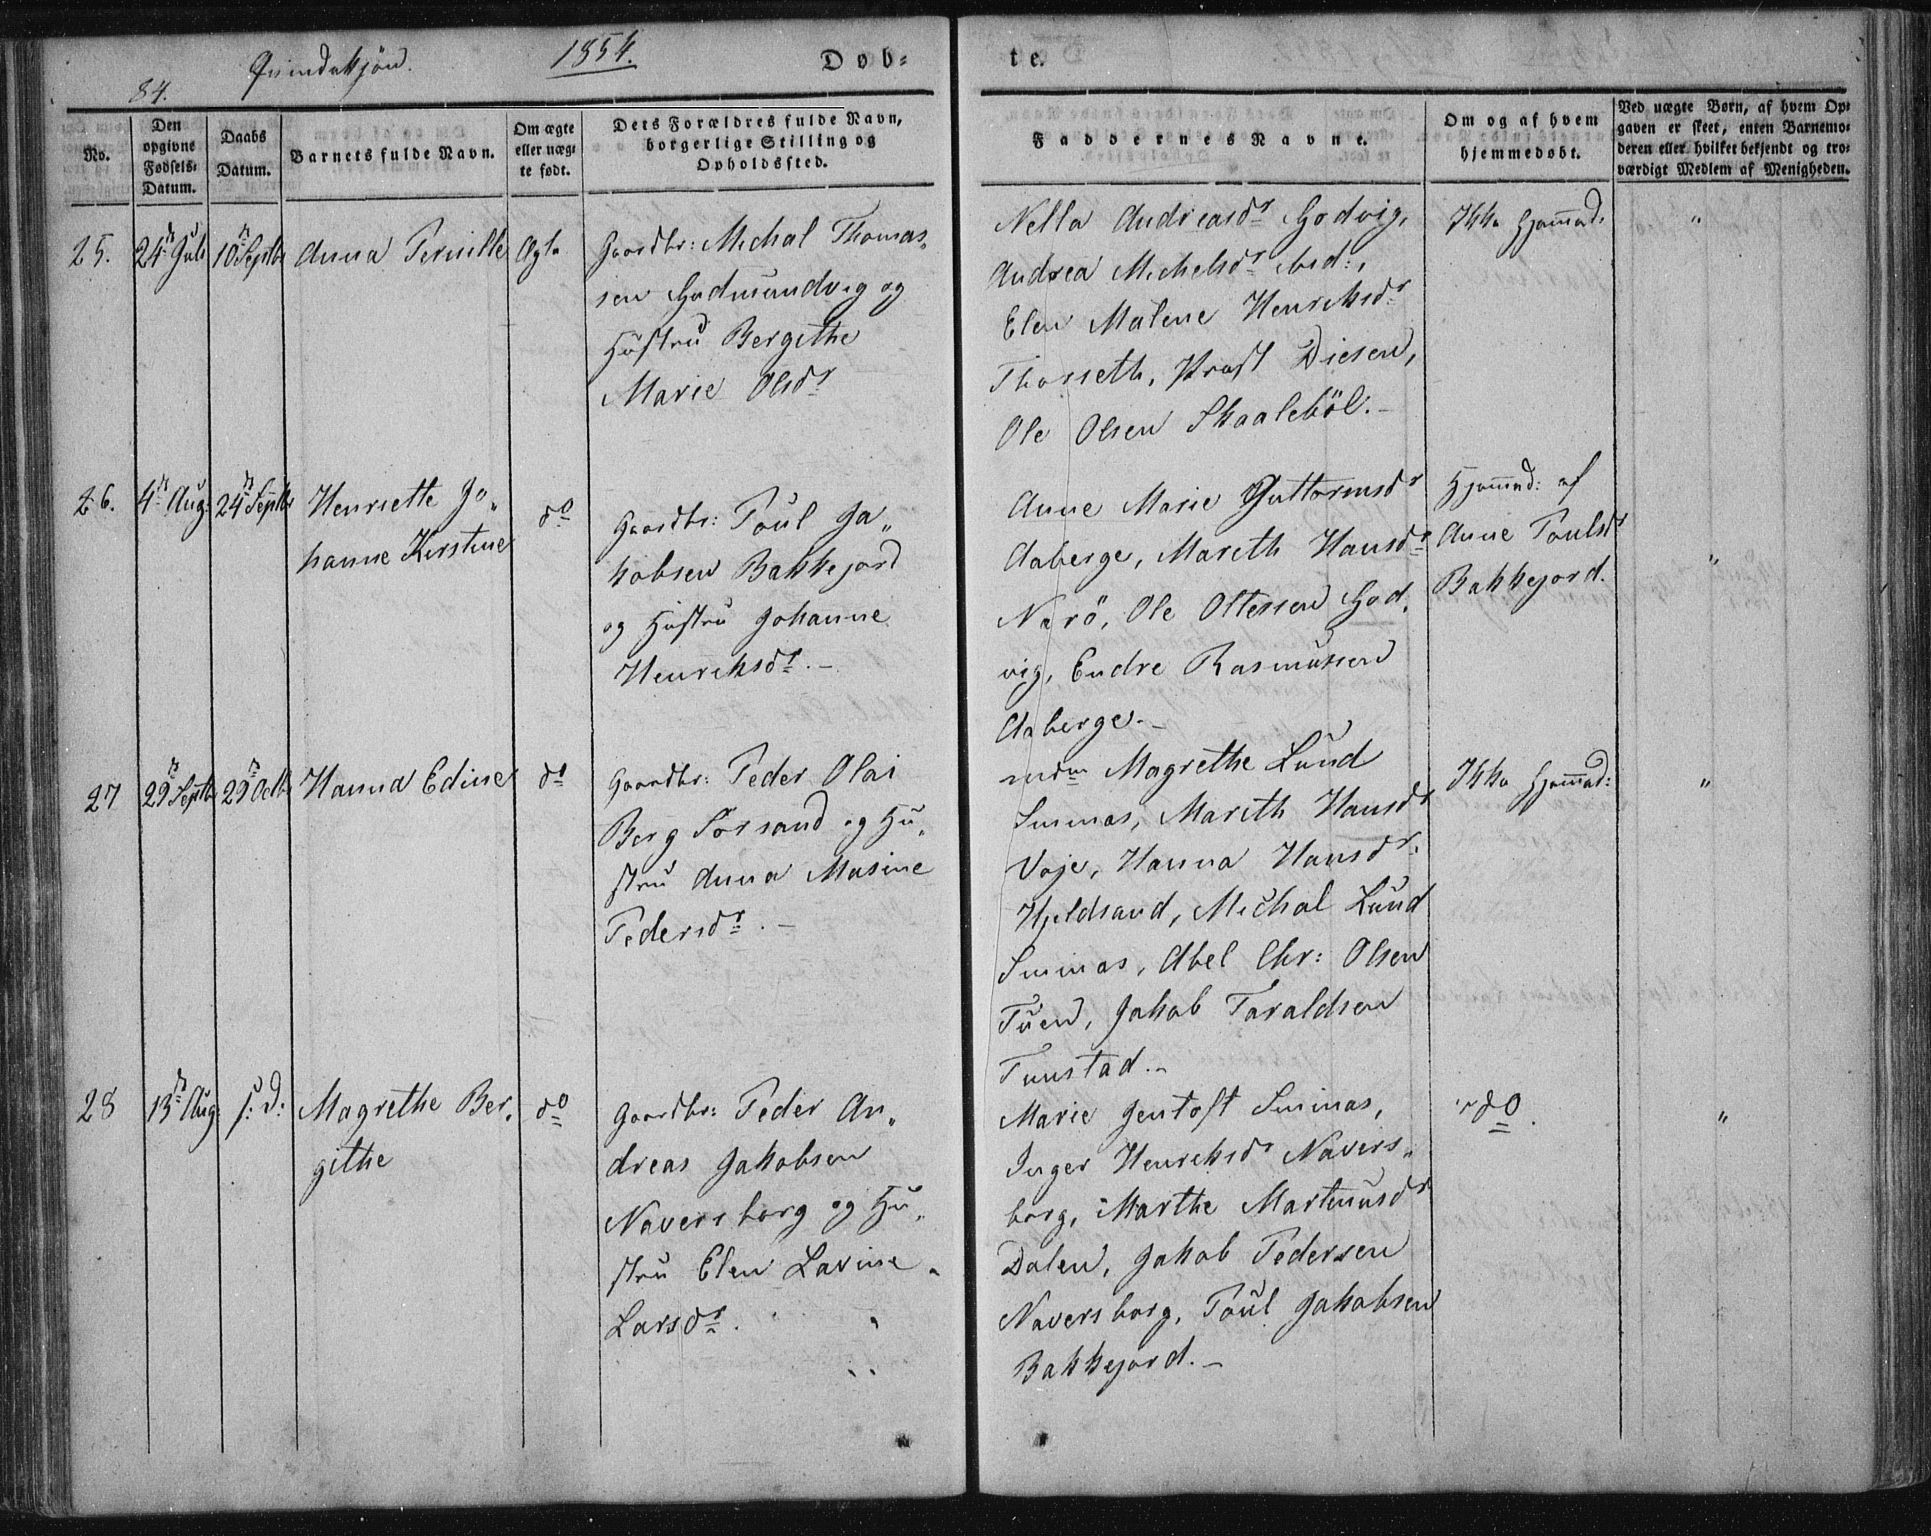 84.
Qvindekjön.
1854.
Døb-
te.
No.
Den
opgivne
Fødsels-
Datum.
Daabs
Datum.
Barnets fulde Navn.
Om ægte
eller uæg-
te født.
Dets Forældres fulde Navn,
borgerlige Stilling og
Opholdssted.
Faddernes Navne.
Om og af hvem
hjemmedøbt.
Ved uægte Børn, af hvem Op-
gaven er skeet, enten Barnemo-
deren eller hvilket bekjendt og tro-
værdigt Medlem af Menigheden.
25.
24de Juli
10de Septbr
Anna Pernille
Ægte
Gaardbr: Michal Thomas-
sen Gudmundvig og
Hustru Bergithe
Marie Olsdr
Nella Andreasdr Godvig,
Andrea Michelsdr ibid:,
Elen Malene Henriksdr
Thorseth, Prost Diesen,
Ole Olsen Skaaleböl.-
Ikke Hjemmed:
"
26.
4de Aug:
24de Septbr
Henriette Jo-
hanne Kirstine
do
Gaardbr: Poul Ja-
kobsen Bakkejord
og Hustru Johanne
Henriksdr.-
Anne Marie Guttormsdr
Aaberge, Mareth Hansdr
Narö, Ole Ottessen God-
vig, Endre Rasmussen
Aaberge.-
Hjemmed: af
Anne Poulsdr
Bakkejord.
"
27
29de Septbr
29de Octbr
Hanna Edine
do
Gaardbr: Peder Olai
Berg Forsand og Hu-
stru Anna Masine
Pedersdr.-
mdm Magrethe Lund
Smines, Mareth Hansdr
Voje, Hanna Hansdr
Hjeldsand, Michal Lund
Smines, Abel Chr: Olsen
Tuen, Jakob Taraldsen
Tunstad.-
Ikke Hjemmed:
"
28
13de Aug:
s: D:
Magrethe Ber-
githe
do
Gaardbr: Peder An-
dreas Jakobsen
Naversborg og Hu-
stru Elen Lavine
Larsdr.
Marie Jentoft Smines,
Inger Henriksdr Navers-
borg, Marthe Martinusdr
Dalen, Jakob Pedersen
Naversborg, Poul Jakobsen
Bakkejord.-
do.
"